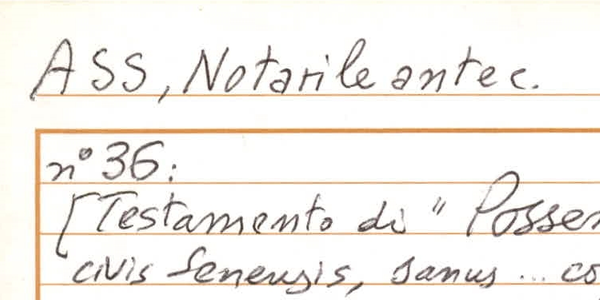 ASS, Notarile antec.
n° 36:
[Testamento di "Possen
civis Senensis, sanus ... co